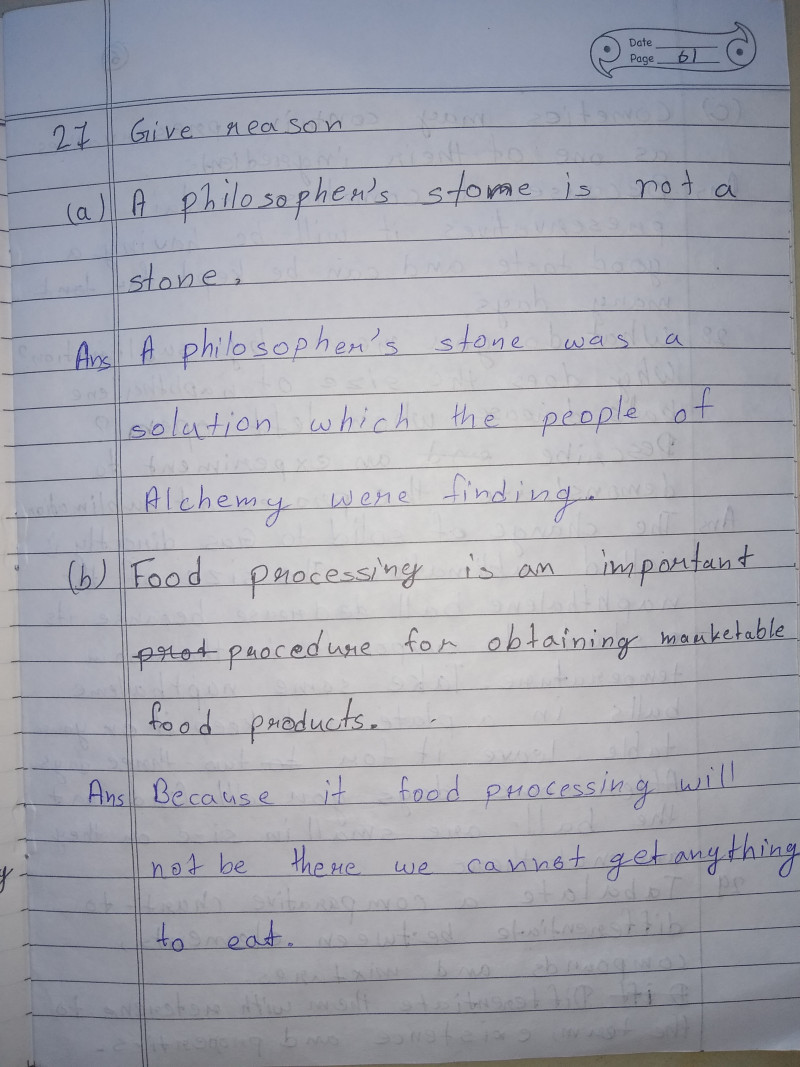 Date
Page 61
27 Give reason
(a) A philosopher's stone is not a
stone.
Ans A philosopher's stone was a
solution which the people of
Alchemy were finding.
(b) Food processing is an important
prot procedure for obtaining marketable
food products.
Ans Because if food processing will
not be there we cannot get anything
to eat.